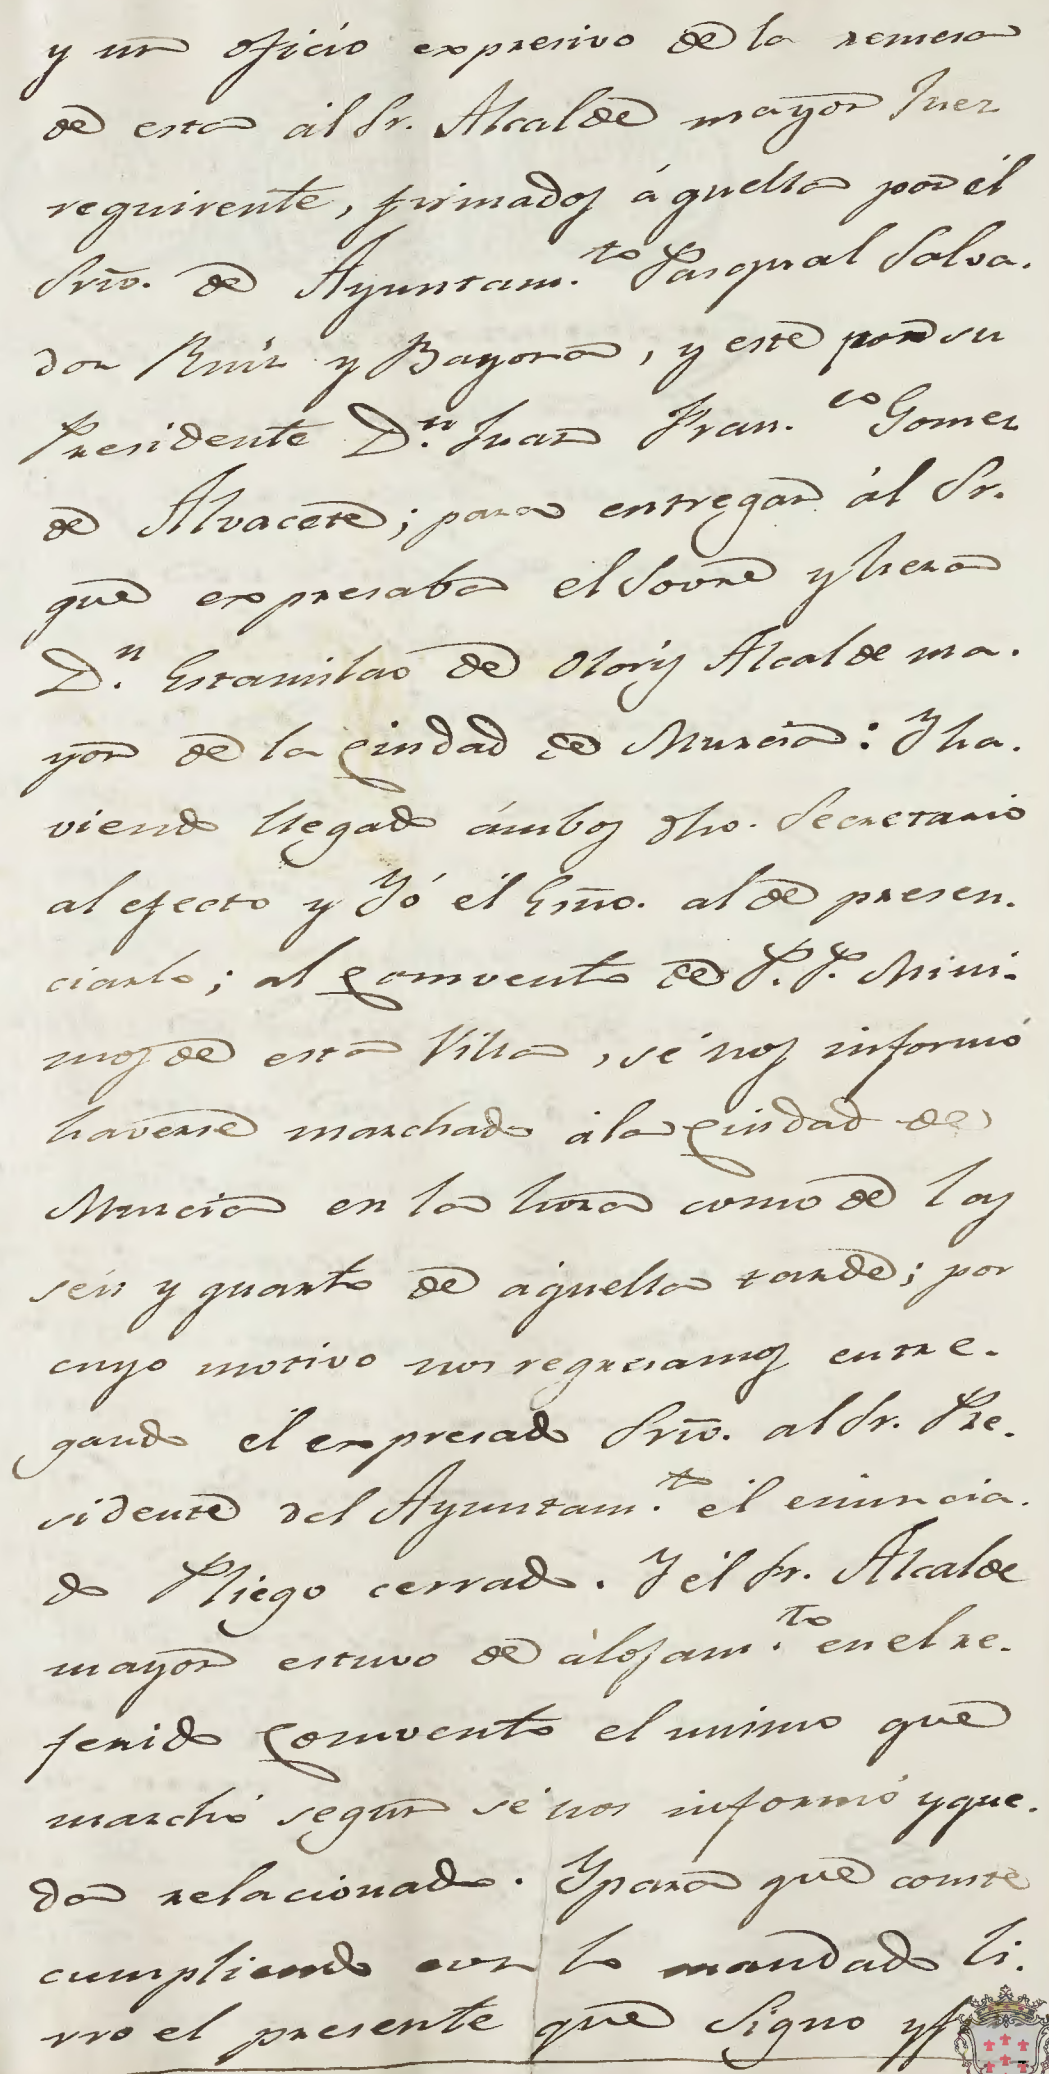 y un oficio expresivo de la remesa
de esta ál Sr. Alcalde mayor Juez
requirente, firmados áquella por él
Srio. de Ayuntam.to Pasqual Salva-
dor Ruiz y Bayona, y este por su
Presidente D.n Juan Fran.co Gomez
de Alvacete; para entregar ál Sr.
que expresaba el Sovre y hera
D.n Estanislao de Oloriz Alcalde ma-
yor de la Ciudad de Murcia: Y ha-
viendo llegado ámbos dho. Secretario
al efecto y Yó él Esño. al de presen-
ciarlo; al Comvento de P.P. Mini-
mos de esta Villa, sé nos informó
haverse marchado á la Ciudad de
Murcia en la hora como de las
séis y quarto de áquella tarde; por
cuyo motivo nos regresamos entre-
gando él expresado Srio. al Sr. Pre-
sidente del Ayuntam.to él enuncia-
do Pliego cerrado. Y él Sr. Alcalde
mayor estuvo de álojam.to en el re-
ferido Comvento el mismo que
marchó segun sé nos informó y que-
da relacionado. Y para que conste
cumpliendo con lo mandado li-
vro el presente que Signo y f